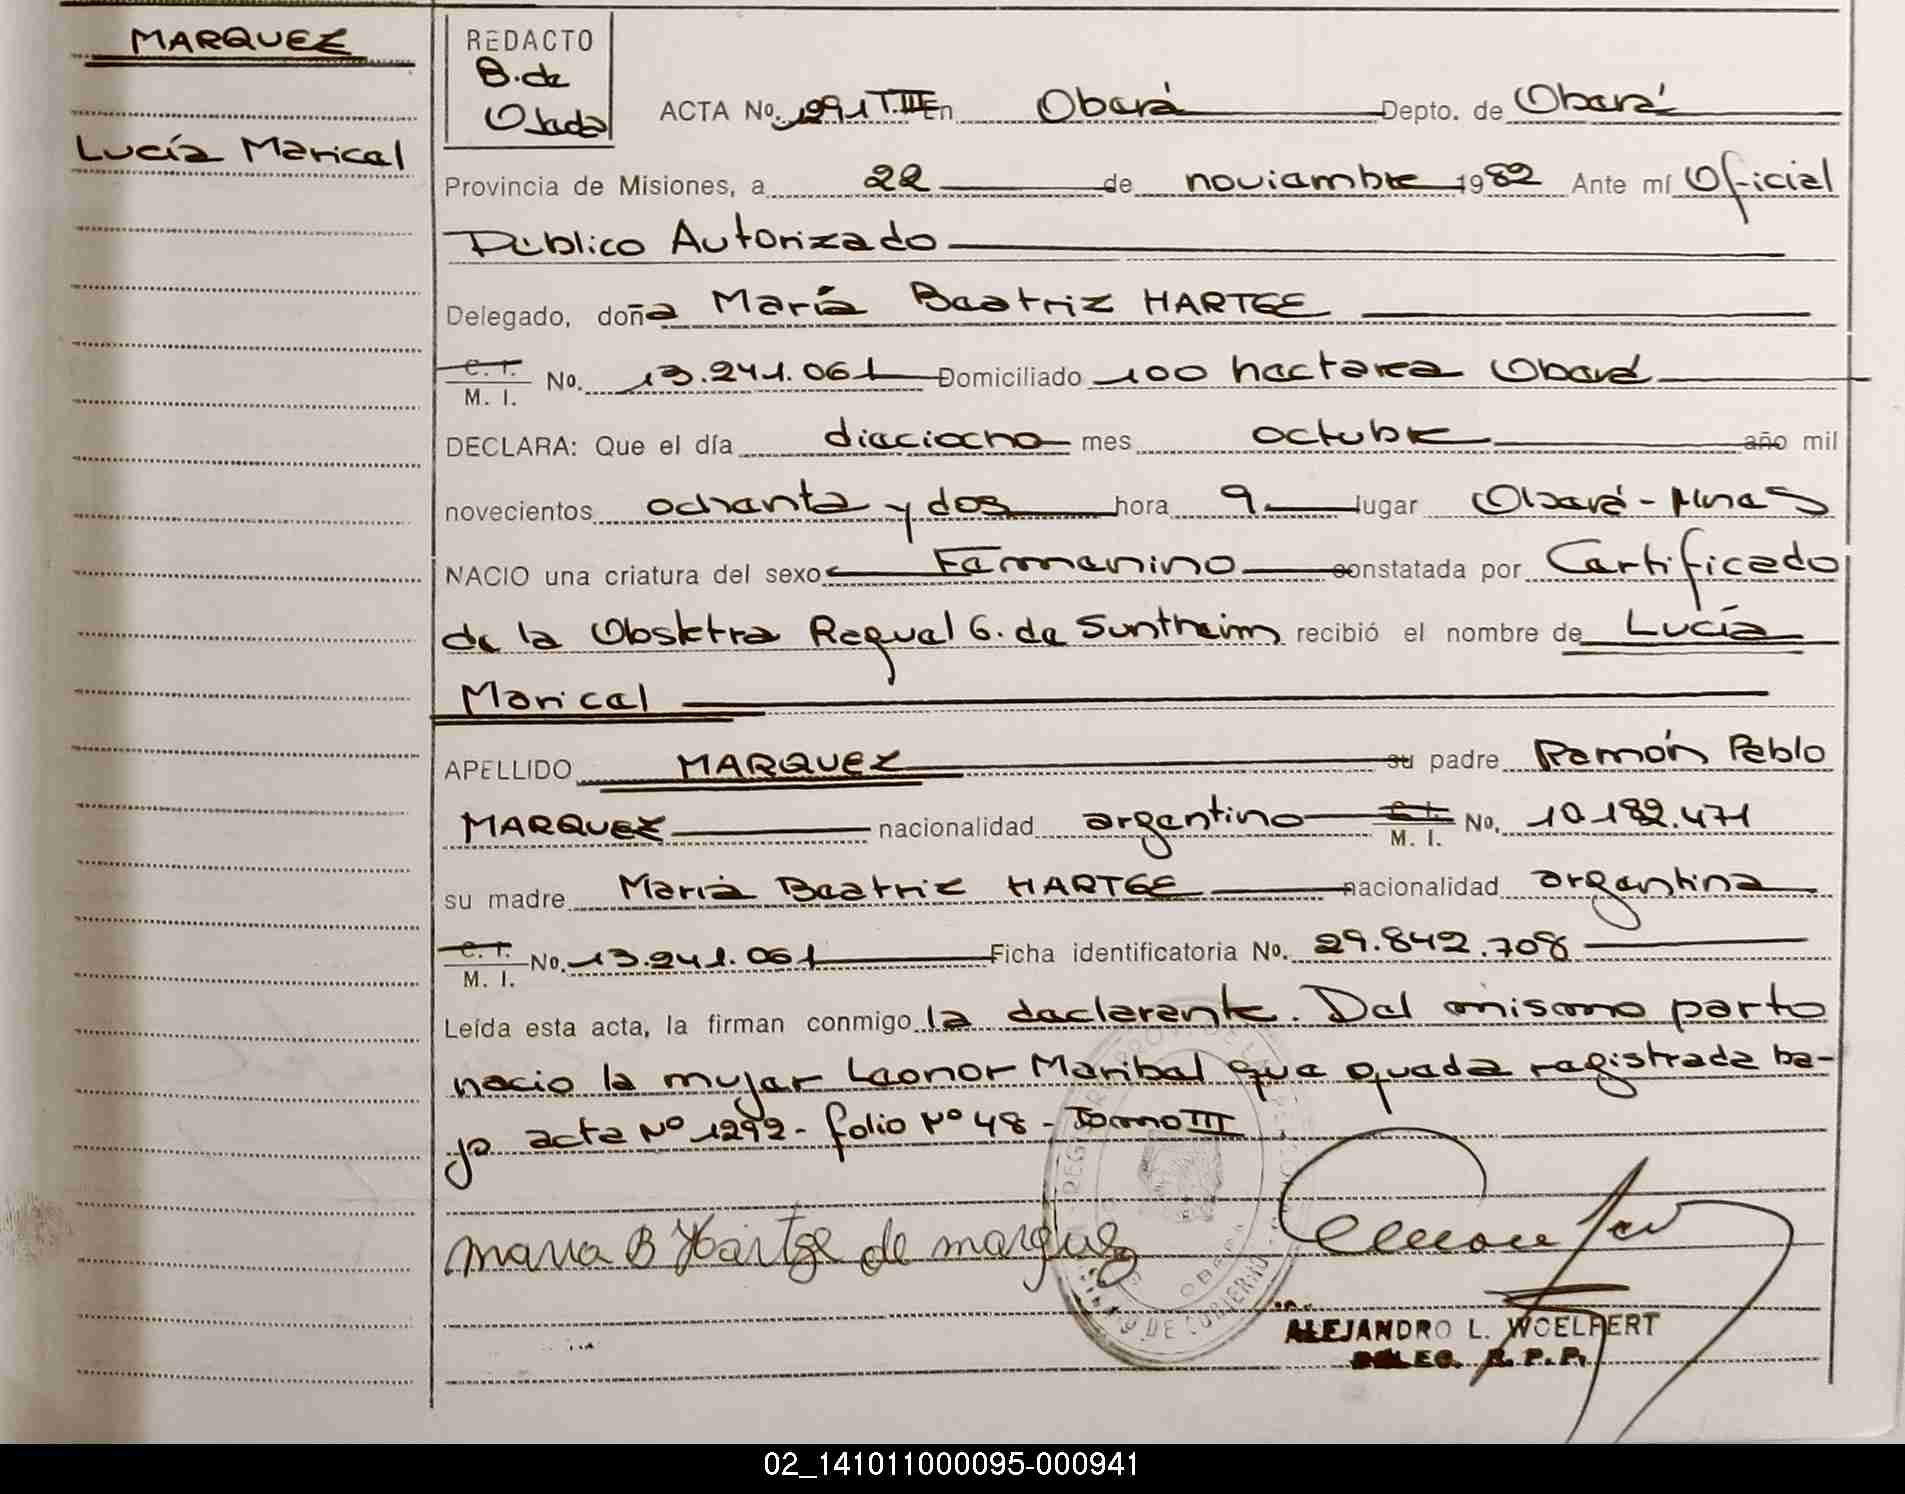 MARQUEZ
Lucía Maricel
REDACTO
B. de
Ojeda
ACTA No. 1291 T.III En Oberá Depto. de Oberá
Provincia de Misiones, a 22 de noviembre 1982 Ante mí Oficial
Público Autorizado
Delegado, doña María Beatriz HARTGE
C. I.
M. I. No. 13.241.061 Domiciliado 100 hectarea Oberá
DECLARA: Que el día dieciocho mes octubre año mil
novecientos ochenta y dos hora 9 lugar Oberá - Mnes
NACIO una criatura del sexo Femenino constatada por Certificado
de la Obstetra Raquel G. de Suntheim recibió el nombre de Lucía
Maricel
APELLIDO MARQUEZ su padre Ramón Pablo
MARQUEZ nacionalidad argentino C. I. M. I. No. 10.182.471
su madre María Beatriz HARTGE nacionalidad argentina
C. I. M. I. No. 13.241.061 Ficha identificatoria No. 29.842.708
Leída esta acta, la firman conmigo la declarente. Del mismo parto
nacio la mujer Leonor Maribel que queda registrada ba-
jo acta Nº 1292 - folio Nº 48 - Tomo III
Maria B Hartge de Marquez
OBERA
DE GOBIERNO
ALEJANDRO L. WOELFERT
DELEG. R. P. P.
02_141011000095-000941